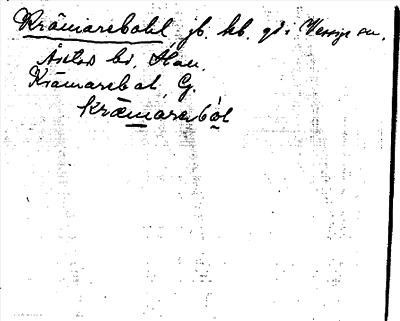 Krämarebohl jb. kb. gd. i Vessige sn,
Årstads hd. Hall.
Krämarebol, G.
Kræmarebol